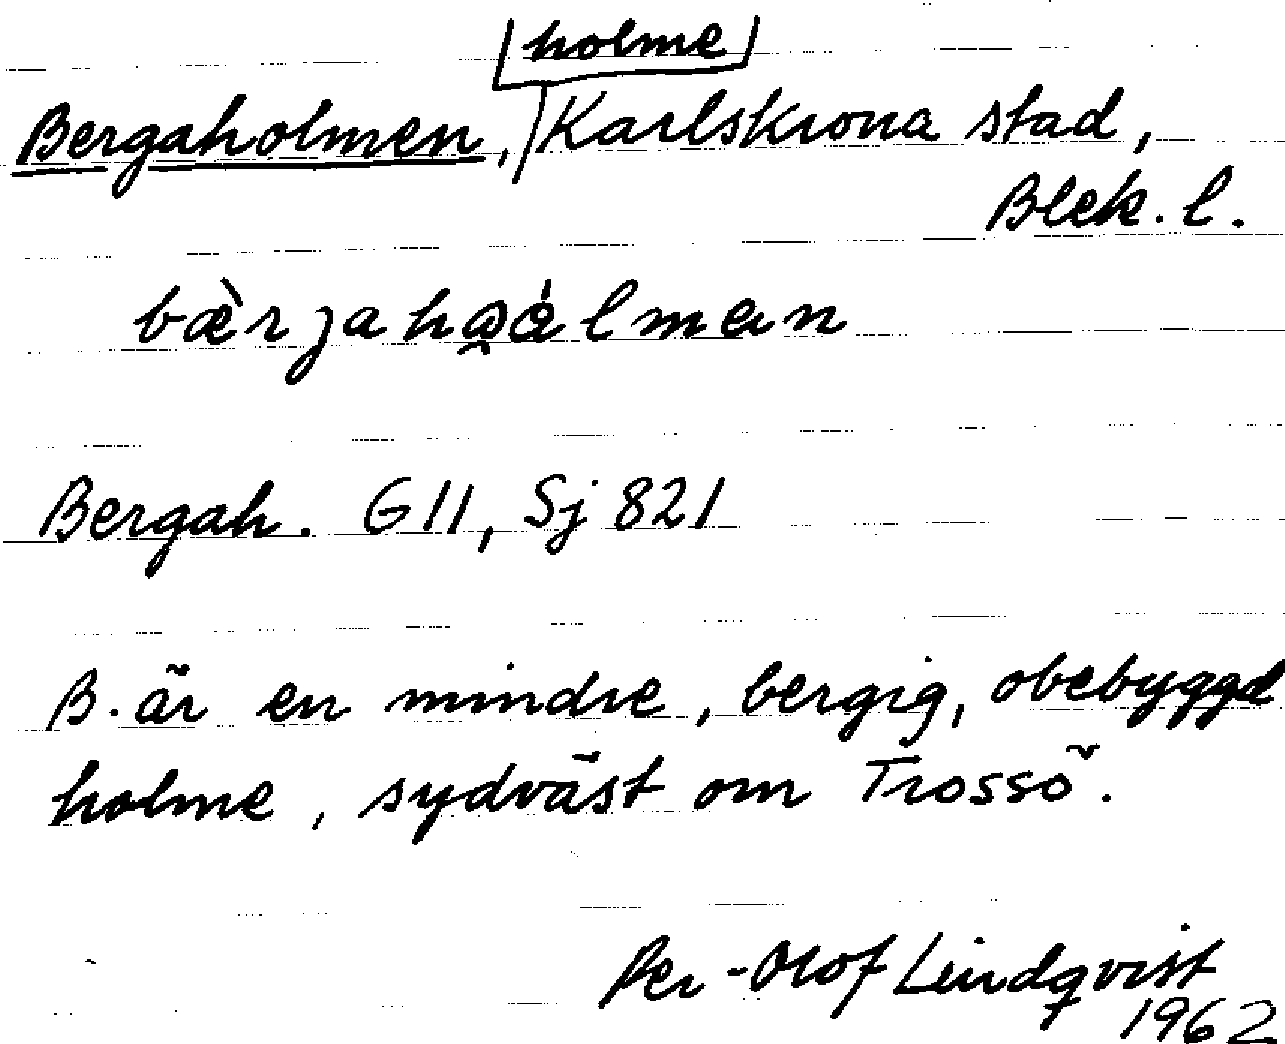 holme
Bergaholmen, Karlskrona stad,
Blek. l.
Bergah. G11, Sj 821
B. är en mindre, bergig, obebyggd
holme, sydväst om Trossö.
Per-Olof Lindqvist
1962